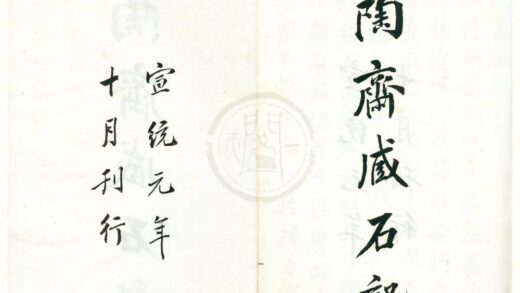 陶齋臧石
宣統元年
十月刊行